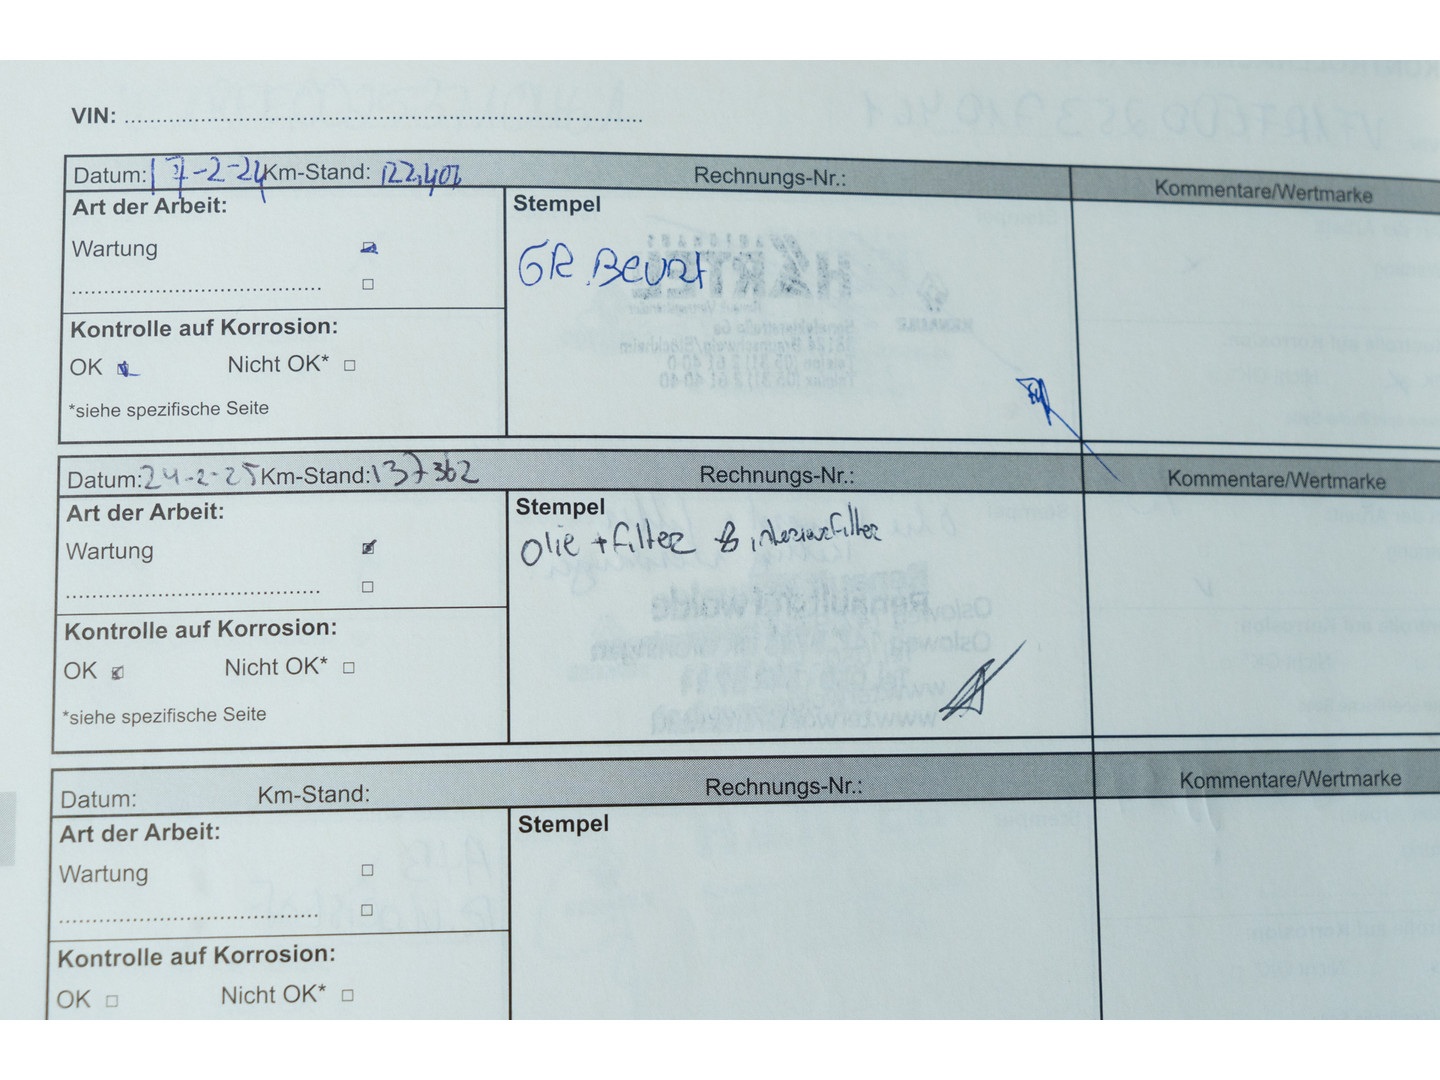 VIN:
Datum: 17-2-24 Km-Stand: 122,407 Rechnungs-Nr.: Kommentare/Wertmarke
Art der Arbeit: Stempel
Wartung
GR. Beurt
Kontrolle auf Korrosion:
OK Nicht OK*
*siehe spezifische Seite
Datum: 24-2-25 Km-Stand: 137362 Rechnungs-Nr.: Kommentare/Wertmarke
Art der Arbeit: Stempel
Wartung
olie + filter & interieurfilter
Kontrolle auf Korrosion:
OK Nicht OK*
*siehe spezifische Seite
Datum: Km-Stand: Rechnungs-Nr.: Kommentare/Wertmarke
Art der Arbeit: Stempel
Wartung
Kontrolle auf Korrosion:
OK Nicht OK*